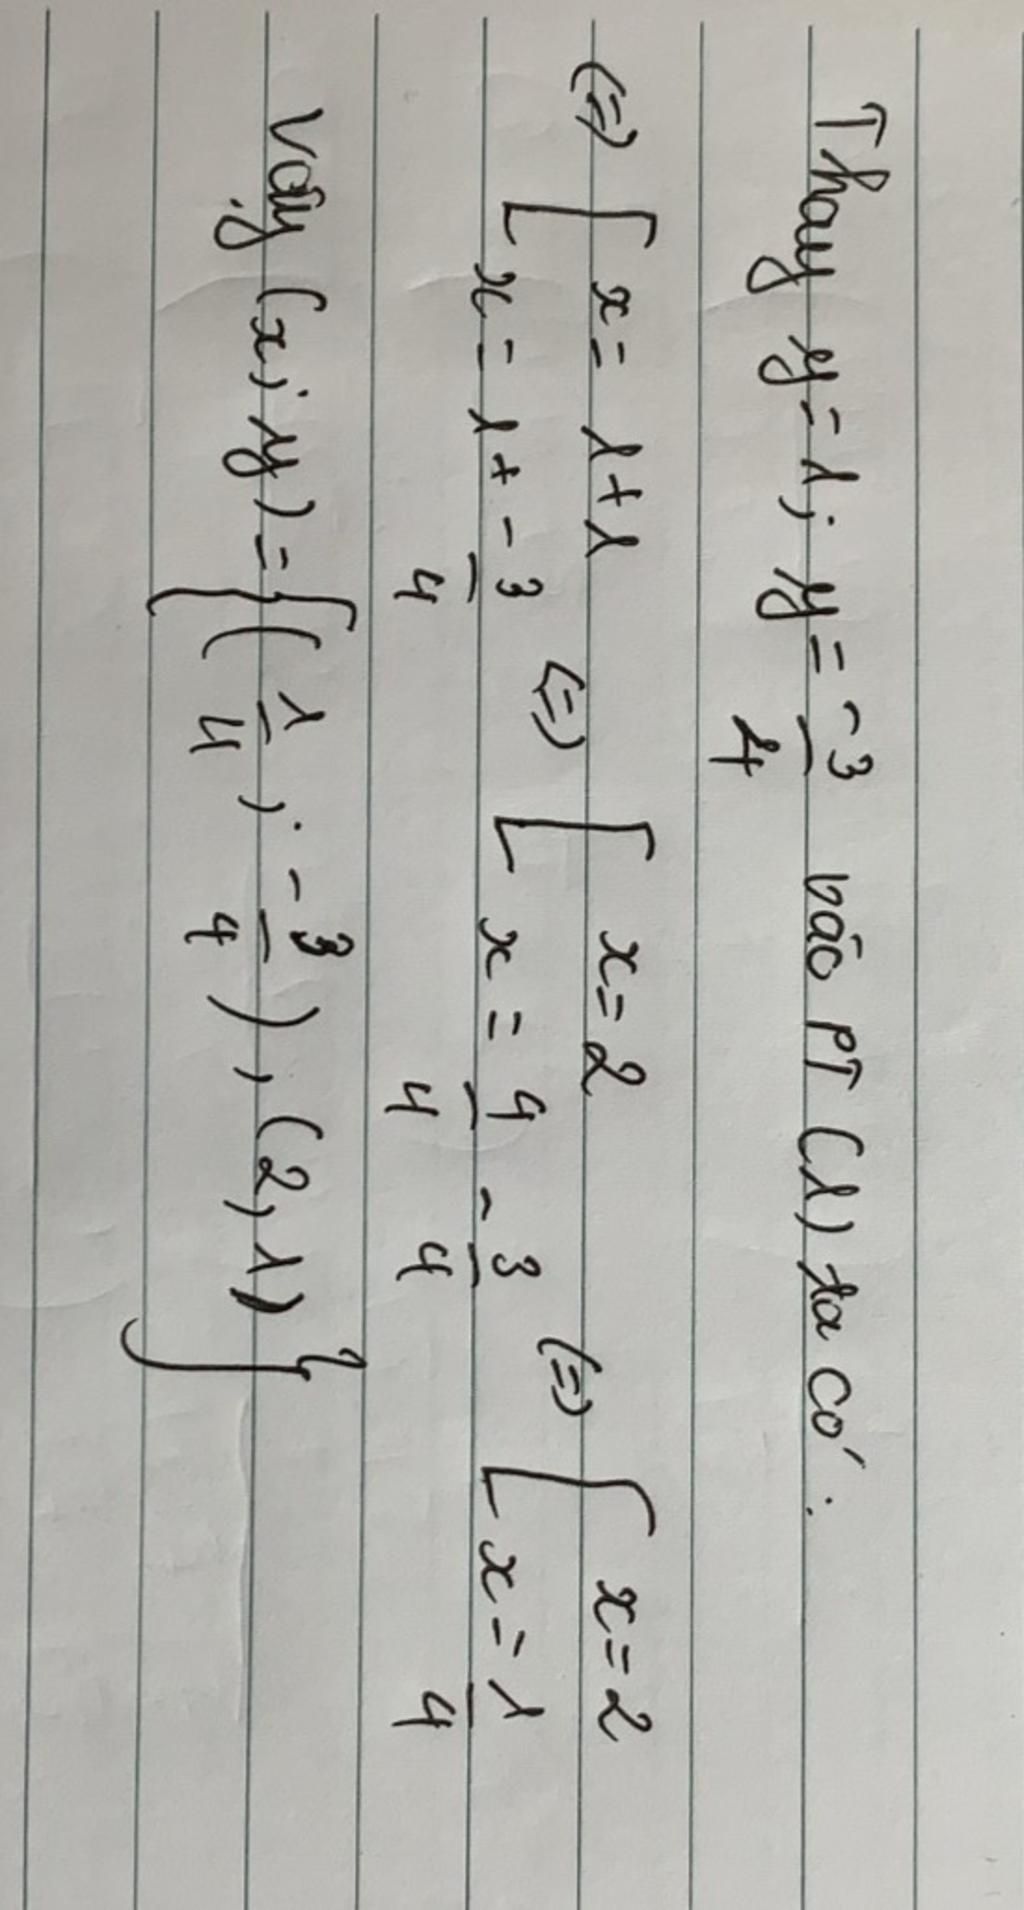 Thay y = 1; y = -3/4 vào PT (1) ta có:
(=) [ x = 1 + 1 (=) [ x = 2 (=) [ x = 2
x = 1 + -3/4 x = 4/4 - 3/4 x = 1/4
Vậy (x; y) = { (1/4; -3/4), (2, 1) }